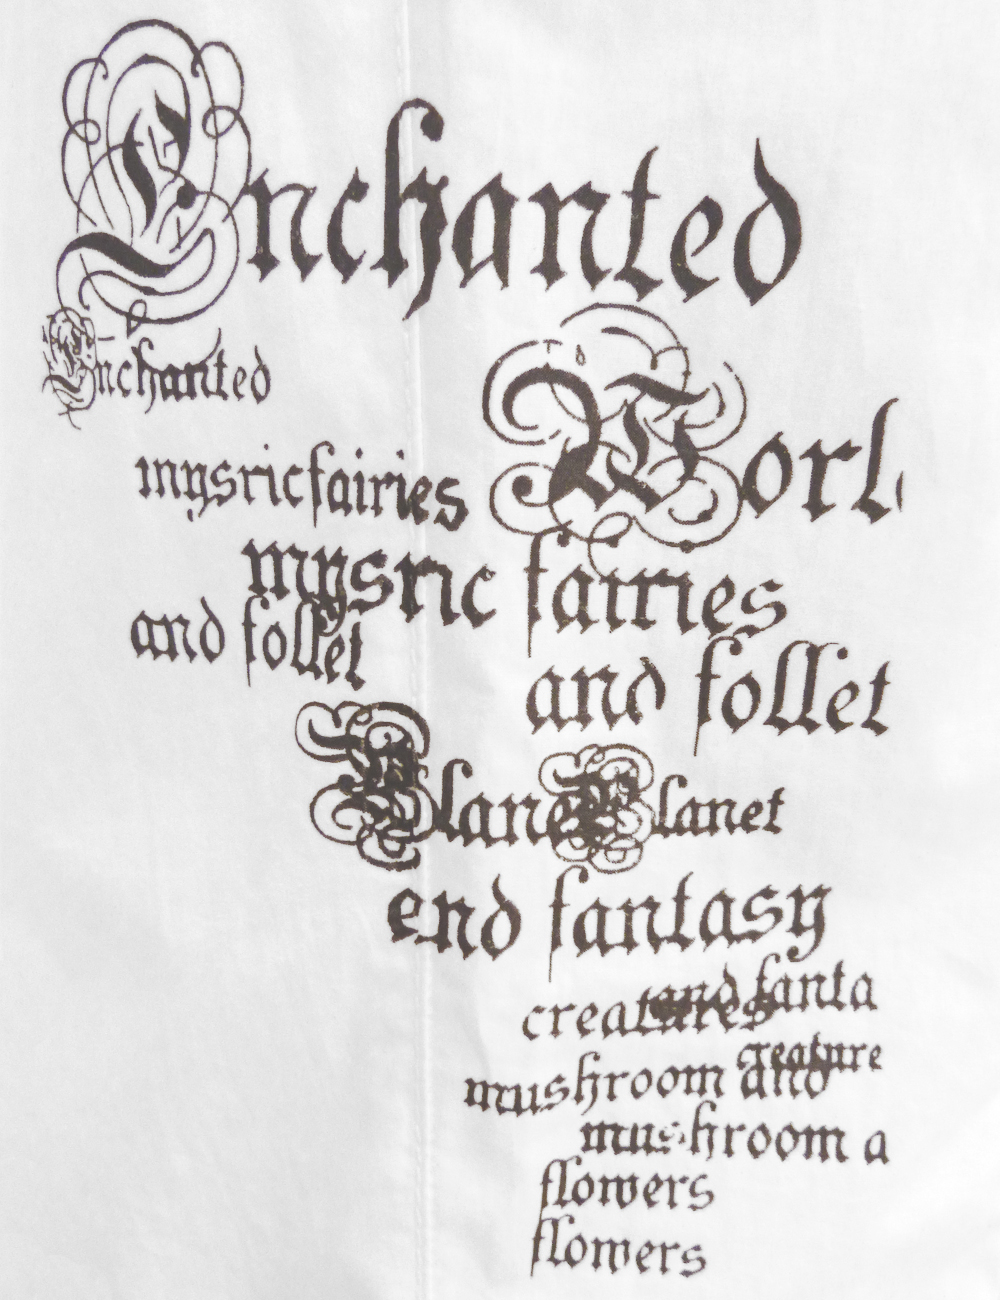 Enchanted
Enchanted
Worl
mysricfairies
mysric fairies
and follet
and follet
Planet
Planet
end fantasy
and fanta
creatures
creature
mushroom and
mushroom a
flowers
flowers